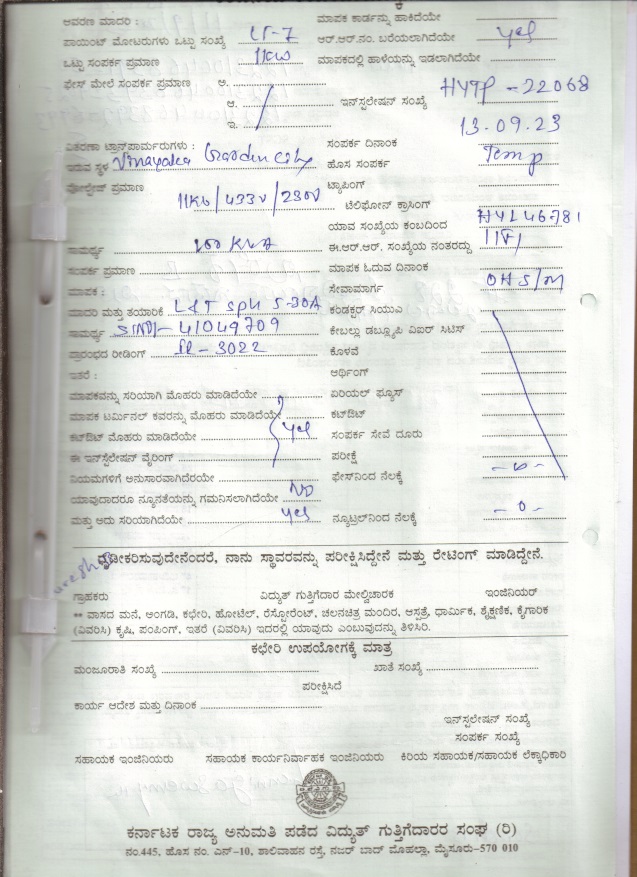 ಆವರಣ ಮಾದರಿ : LT-7 ಮಾಪಕ ಕಾರ್ಡನ್ನು ಹಾಕಿದೆಯೇ
ಪಾಯಿಂಟ್ ಮೋಟರುಗಳು ಒಟ್ಟು ಸಂಖ್ಯೆ ಆರ್.ಆರ್.ನಂ. ಬರೆಯಲಾಗಿದೆಯೇ yes
ಒಟ್ಟು ಸಂಪರ್ಕ ಪ್ರಮಾಣ 11KW ಮಾಪಕದಲ್ಲಿ ಹಾಳೆಯನ್ನು ಇಡಲಾಗಿದೆಯೇ
ಫೇಸ್ ಮೇಲೆ ಸಂಪರ್ಕ ಪ್ರಮಾಣ ಅ.
ಆ. ಇನ್‌ಸ್ಟಲೇಷನ್ ಸಂಖ್ಯೆ HYTP-22068
ಇ. 13.09.23
ವಿತರಣಾ ಟ್ರಾನ್ಸ್‌ಫಾರ್ಮರುಗಳು : ಸಂಪರ್ಕ ದಿನಾಂಕ
ಇರುವ ಸ್ಥಳ Vinayaka Garden City ಹೊಸ ಸಂಪರ್ಕ Temp
ವೋಲ್ಟೇಜ್ ಪ್ರಮಾಣ 11KV/433V/230V ಟ್ಯಾಪಿಂಗ್
ಟೆಲಿಫೋನ್ ಕ್ರಾಸಿಂಗ್
ಯಾವ ಸಂಖ್ಯೆಯ ಕಂಬದಿಂದ HYL46781
ಸಾಮರ್ಥ್ಯ 100 KVA ಈ.ಆರ್.ಆರ್. ಸಂಖ್ಯೆಯ ನಂತರದ್ದು
ಸಂಪರ್ಕ ಪ್ರಮಾಣ ಮಾಪಕ ಓದುವ ದಿನಾಂಕ
ಮಾಪಕ : ಸೇವಾಮಾರ್ಗ OHS/M
ಮಾದರಿ ಮತ್ತು ತಯಾರಿಕೆ L&T SPH 5-30A ಕಂಡಕ್ಟರ್ ಸಿಯುಎ
ಸಾಮರ್ಥ್ಯ 41049709 ಕೇಬಲ್ಲು ಡಬ್ಲ್ಯೂಪಿ ವಿಐರ್ ಸಿಟಿಸ್
ಪ್ರಾರಂಭದ ರೀಡಿಂಗ್ IR-3022 ಕೊಳವೆ
ಇತರೆ : ಆರ್ಥಿಂಗ್
ಮಾಪಕವನ್ನು ಸರಿಯಾಗಿ ಮೊಹರು ಮಾಡಿದೆಯೇ ಏರಿಯಲ್ ಫ್ಯೂಸ್
ಮಾಪಕ ಟರ್ಮಿನಲ್ ಕವರನ್ನು ಮೊಹರು ಮಾಡಿದೆಯೆ ಕಟ್‌ಔಟ್
ಕಟ್‌ಔಟ್ ಮೊಹರು ಮಾಡಿದೆಯೇ yes ಸಂಪರ್ಕ ಸೇವೆ ದೂರು
ಈ ಇನ್‌ಸ್ಟಲೇಷನ್ ವೈರಿಂಗ್ ಪರೀಕ್ಷೆ
ನಿಯಮಗಳಿಗೆ ಅನುಸಾರವಾಗಿದೆರಯೇ ಫೇಸ್‌ನಿಂದ ನೆಲಕ್ಕೆ
ಯಾವುದಾದರೂ ನ್ಯೂನತೆಯನ್ನು ಗಮನಿಸಲಾಗಿದೆಯೇ No
ಮತ್ತು ಅದು ಸರಿಯಾಗಿದೆಯೇ yes ನ್ಯೂಟ್ರಲ್‌ನಿಂದ ನೆಲಕ್ಕೆ -0-
ದೃಢೀಕರಿಸುವುದೇನೆಂದರೆ, ನಾನು ಸ್ಥಾವರವನ್ನು ಪರೀಕ್ಷಿಸಿದ್ದೇನೆ ಮತ್ತು ರೇಟಿಂಗ್ ಮಾಡಿದ್ದೇನೆ.
ಗ್ರಾಹಕರು ವಿದ್ಯುತ್ ಗುತ್ತಿಗೆದಾರ ಮೇಲ್ವಿಚಾರಕ ಇಂಜಿನಿಯರ್
** ವಾಸದ ಮನೆ, ಅಂಗಡಿ, ಕಛೇರಿ, ಹೋಟೆಲ್, ರೆಸ್ಟೋರೆಂಟ್, ಚಲನಚಿತ್ರ ಮಂದಿರ, ಆಸ್ಪತ್ರೆ, ಧಾರ್ಮಿಕ, ಶೈಕ್ಷಣಿಕ, ಕೈಗಾರಿಕ
(ವಿವರಿಸಿ) ಕೃಷಿ, ಪಂಪಿಂಗ್, ಇತರೆ (ವಿವರಿಸಿ) ಇದರಲ್ಲಿ ಯಾವುದು ಎಂಬುವುದನ್ನು ತಿಳಿಸಿರಿ.
ಕಛೇರಿ ಉಪಯೋಗಕ್ಕೆ ಮಾತ್ರ
ಮಂಜೂರಾತಿ ಸಂಖ್ಯೆ ಖಾತೆ ಸಂಖ್ಯೆ
ಪರೀಕ್ಷಿಸಿದೆ
ಕಾರ್ಯ ಆದೇಶ ಮತ್ತು ದಿನಾಂಕ
ಇನ್‌ಸ್ಟಲೇಷನ್ ಸಂಖ್ಯೆ
ಸಂಪರ್ಕ ಸಂಖ್ಯೆ
ಸಹಾಯಕ ಇಂಜಿನಿಯರು ಸಹಾಯಕ ಕಾರ್ಯನಿರ್ವಾಹಕ ಇಂಜಿನಿಯರು ಕಿರಿಯ ಸಹಾಯಕ/ಸಹಾಯಕ ಲೆಕ್ಕಾಧಿಕಾರಿ
ಕರ್ನಾಟಕ ರಾಜ್ಯ ಅನುಮತಿ ಪಡೆದ ವಿದ್ಯುತ್ ಗುತ್ತಿಗೆದಾರರ ಸಂಘ (ರಿ)
ನಂ.445, ಹೊಸ ನಂ. ಎನ್-10, ಶಾಲಿವಾಹನ ರಸ್ತೆ, ನಜರ್ ಬಾದ್ ಮೊಹಲ್ಲಾ, ಮೈಸೂರು-570 010